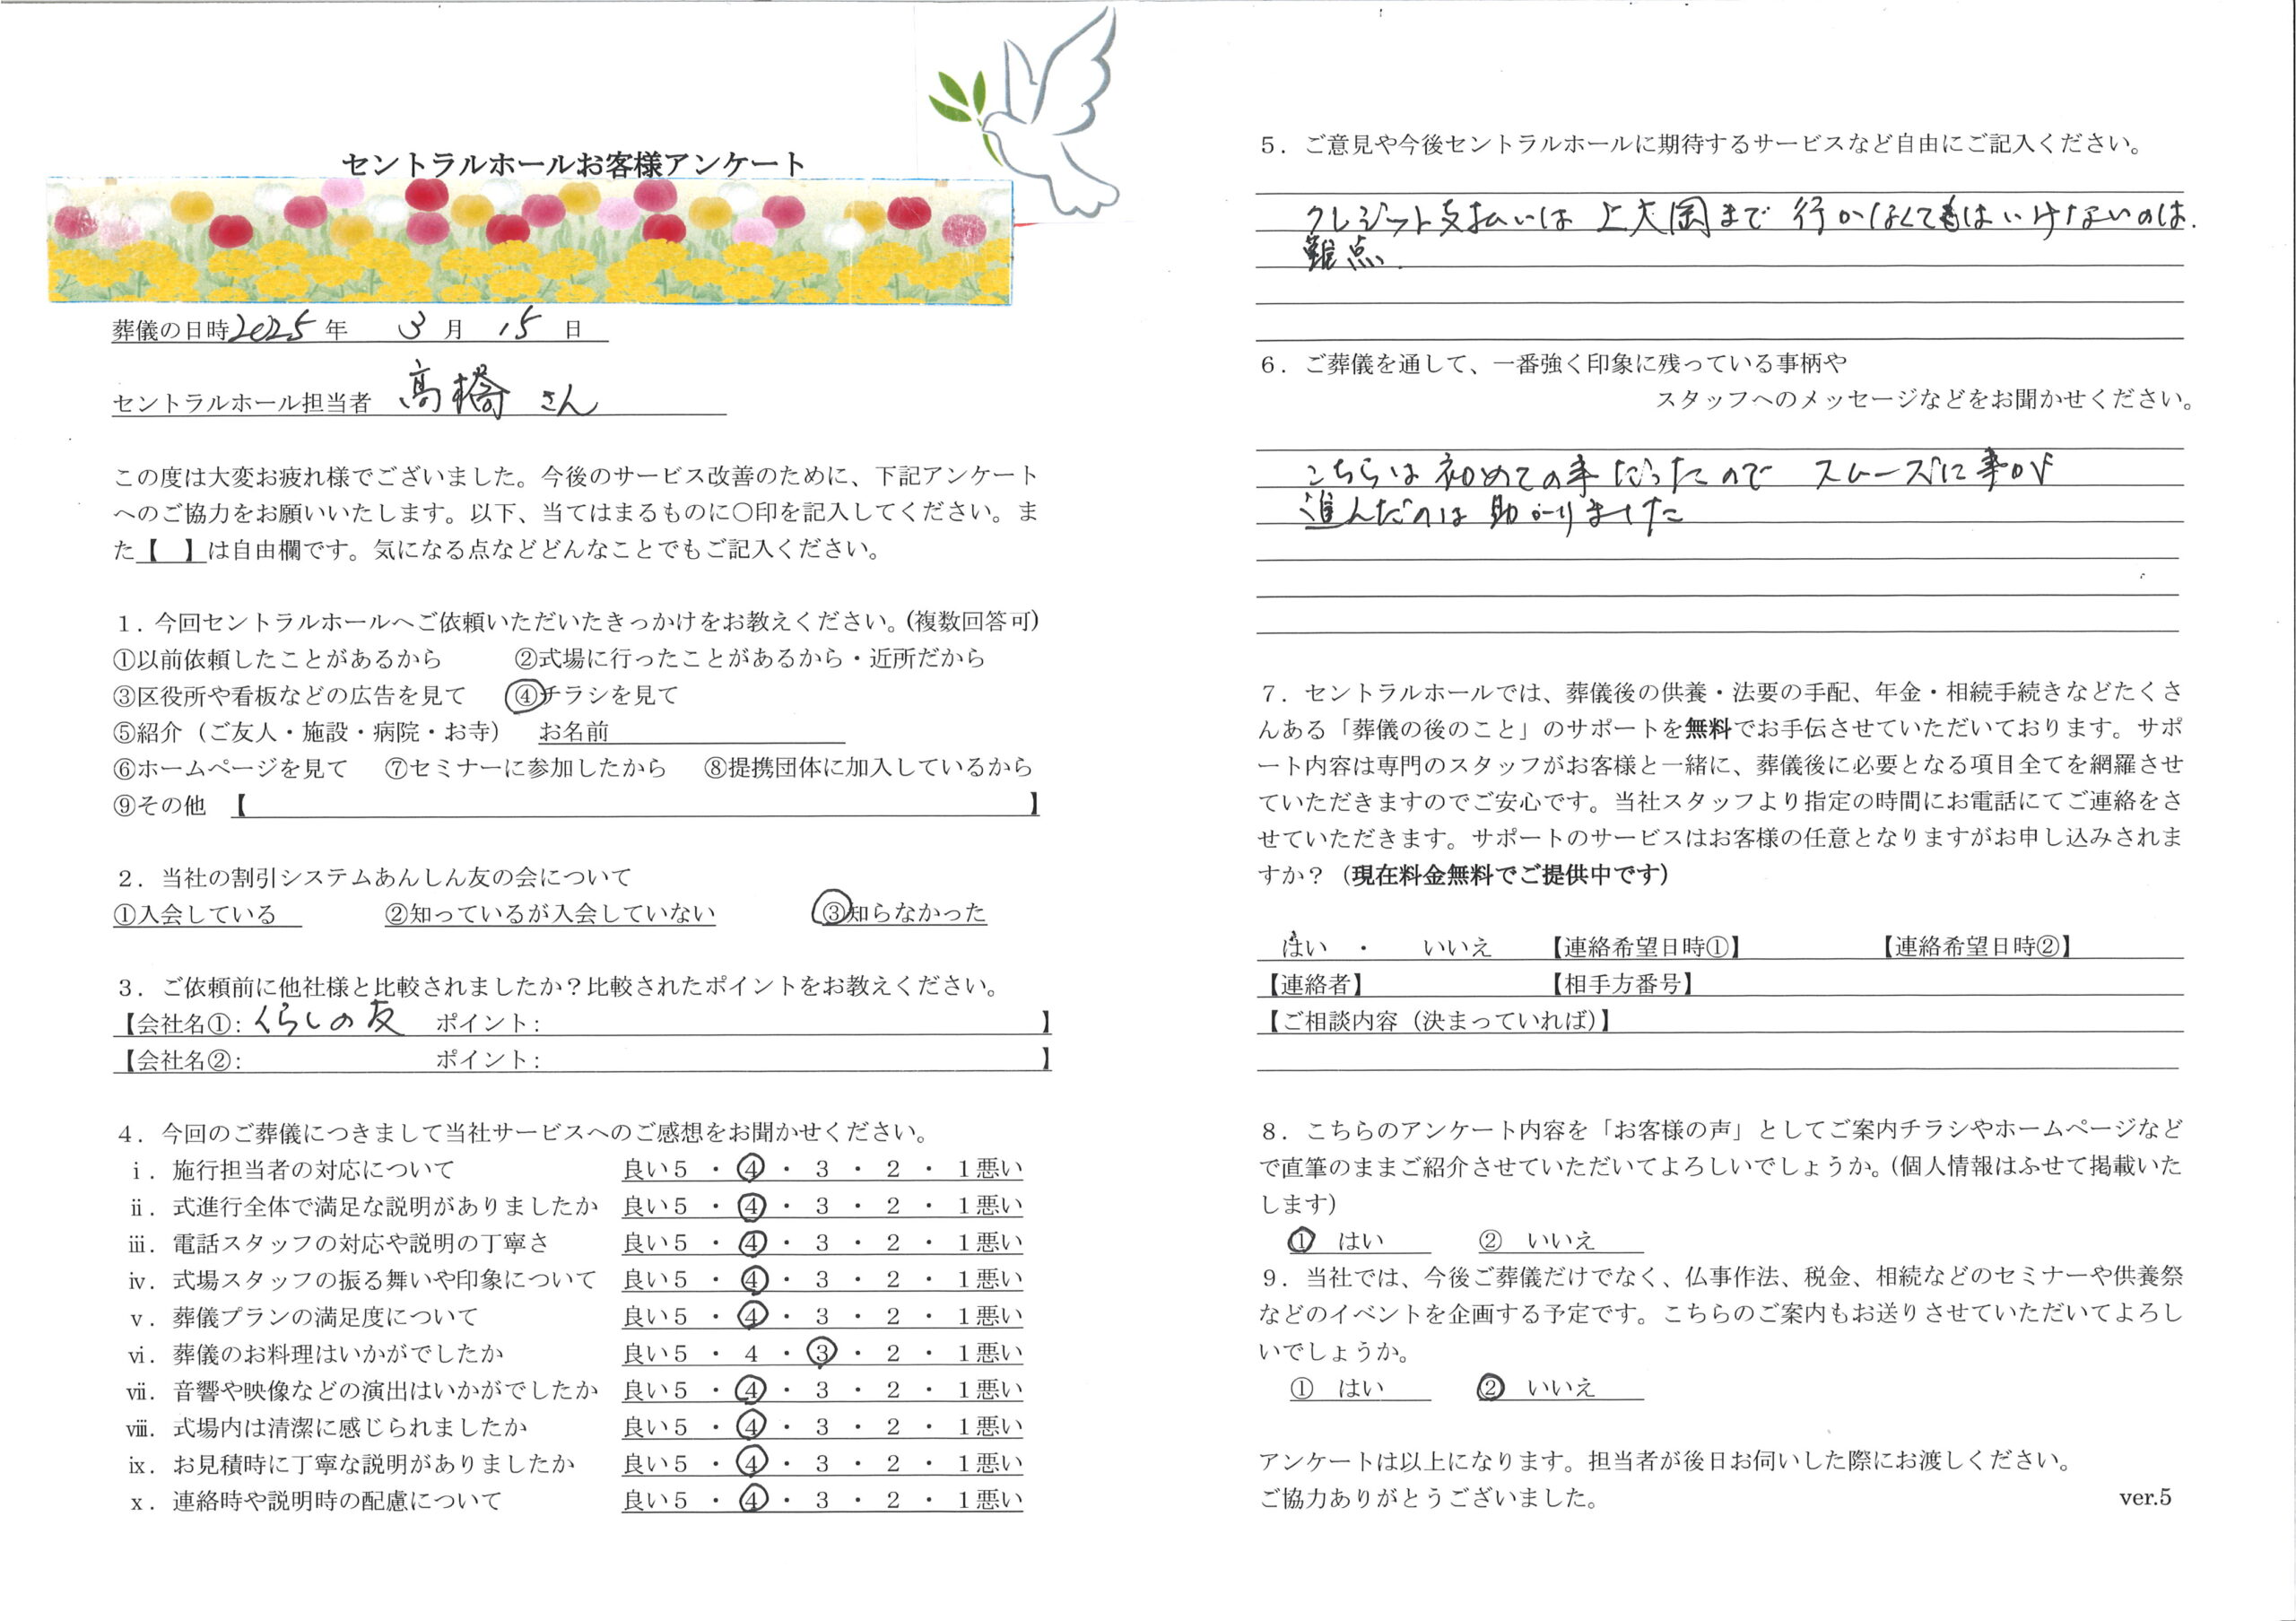 セントラルホールお客様アンケート
葬儀の日時2025年 3月 15日
セントラルホール担当者 高橋さん
この度は大変お疲れ様でございました。今後のサービス改善のために、下記アンケート
へのご協力をお願いいたします。以下、当てはまるものに〇印を記入してください。ま
た【 】は自由欄です。気になる点などどんなことでもご記入ください。
1.今回セントラルホールへご依頼いただいたきっかけをお教えください。(複数回答可)
①以前依頼したことがあるから ②式場に行ったことがあるから・近所だから
③区役所や看板などの広告を見て ④チラシを見て
⑤紹介(ご友人・施設・病院・お寺) お名前
⑥ホームページを見て ⑦セミナーに参加したから ⑧提携団体に加入しているから
⑨その他 【 】
2.当社の割引システムあんしん友の会について
①入会している ②知っているが入会していない ③知らなかった
3.ご依頼前に他社様と比較されましたか?比較されたポイントをお教えください。
【会社名①:くらしの友 ポイント: 】
【会社名②: ポイント: 】
4.今回のご葬儀につきまして当社サービスへのご感想をお聞かせください。
ⅰ.施行担当者の対応について 良い5・④・3・2・1悪い
ⅱ.式進行全体で満足な説明がありましたか 良い5・④・3・2・1悪い
ⅲ.電話スタッフの対応や説明の丁寧さ 良い5・④・3・2・1悪い
ⅳ.式場スタッフの振る舞いや印象について 良い5・④・3・2・1悪い
ⅴ.葬儀プランの満足度について 良い5・④・3・2・1悪い
ⅵ.葬儀のお料理はいかがでしたか 良い5・4・③・2・1悪い
ⅶ.音響や映像などの演出はいかがでしたか 良い5・④・3・2・1悪い
ⅷ.式場内は清潔に感じられましたか 良い5・④・3・2・1悪い
ⅸ.お見積時に丁寧な説明がありましたか 良い5・④・3・2・1悪い
ⅹ.連絡時や説明時の配慮について 良い5・④・3・2・1悪い
5.ご意見や今後セントラルホールに期待するサービスなど自由にご記入ください。
クレジット支払いは 上大岡まで 行かなくてはいけないのは.
難点.
6.ご葬儀を通して、一番強く印象に残っている事柄や
スタッフへのメッセージなどをお聞かせください。
こちらは初めての事だったので スムーズに事が
進んだのは助かりました
7.セントラルホールでは、葬儀後の供養・法要の手配、年金・相続手続きなどたくさ
んある「葬儀の後のこと」のサポートを無料でお手伝させていただいております。サポ
ート内容は専門のスタッフがお客様と一緒に、葬儀後に必要となる項目全てを網羅させ
ていただきますのでご安心です。当社スタッフより指定の時間にお電話にてご連絡をさ
せていただきます。サポートのサービスはお客様の任意となりますがお申し込みされま
すか?(現在料金無料でご提供中です)
はい ・ いいえ 【連絡希望日時①】 【連絡希望日時②】
【連絡者】 【相手方番号】
【ご相談内容(決まっていれば)】
8.こちらのアンケート内容を「お客様の声」としてご案内チラシやホームページなど
で直筆のままご紹介させていただいてよろしいでしょうか。(個人情報はふせて掲載いた
します)
① はい ② いいえ
9.当社では、今後ご葬儀だけでなく、仏事作法、税金、相続などのセミナーや供養祭
などのイベントを企画する予定です。こちらのご案内もお送りさせていただいてよろし
いでしょうか。
① はい ② いいえ
アンケートは以上になります。担当者が後日お伺いした際にお渡しください。
ご協力ありがとうございました。 ver.5